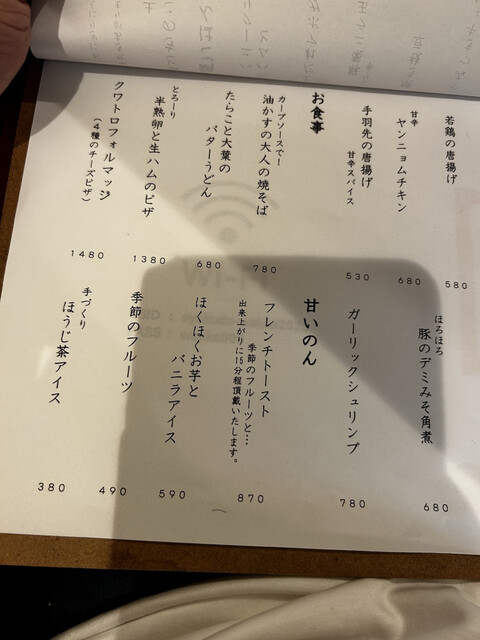 若鶏の唐揚げ
580
甘辛
ヤンニョムチキン
680
手羽先の唐揚げ
甘辛スパイス
530
お食事
カープソースでー
油かすの大人の焼そば
780
たらこと大葉の
バターうどん
680
とろーり
半熟卵と生ハムのピザ
1380
クワトロフォルマッジ
（４種のチーズピザ）
1480
ほろほろ
豚のデミみそ角煮
680
ガーリックシュリンプ
780
甘いのん
フレンチトースト
季節のフルーツと…
出来上がりに15分程頂戴いたします。
870
ほくほくお芋と
バニラアイス
590
季節のフルーツ
490
手づくり
ほうじ茶アイス
380
Wi-Fi